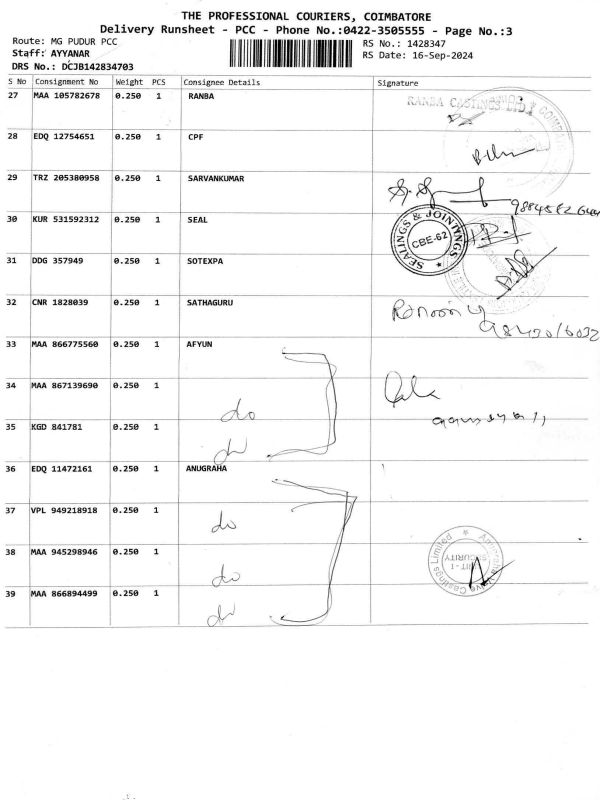 THE PROFESSIONAL COURIERS, COIMBATORE
Delivery Runsheet - PCC - Phone No.:0422-3505555 - Page No.:3
Route: MG PUDUR PCC
RS No.: 1428347
Staff: AYYANAR
RS Date: 16-Sep-2024
DRS No.: DCJB142834703
S No Consignment No Weight PCS Consignee Details Signature
27 MAA 105782678 0.250 1 RANBA
RANBA CASTINGS LTD
28 EDQ 12754651 0.250 1 CPF
29 TRZ 205380958 0.250 1 SARVANKUMAR
30 KUR 531592312 0.250 1 SEAL
SEALINGS & JOINTINGS
CBE-62
31 DDG 357949 0.250 1 SOTEXPA
32 CNR 1828039 0.250 1 SATHAGURU
33 MAA 866775560 0.250 1 AFYUN
34 MAA 867139690 0.250 1 do
35 KGD 841781 0.250 1 do
36 EDQ 11472161 0.250 1 ANUGRAHA
37 VPL 949218918 0.250 1 do
38 MAA 945298946 0.250 1 do
Anugraha Valve Castings Limited
UNIT-I
SECURITY
39 MAA 866894499 0.250 1 do